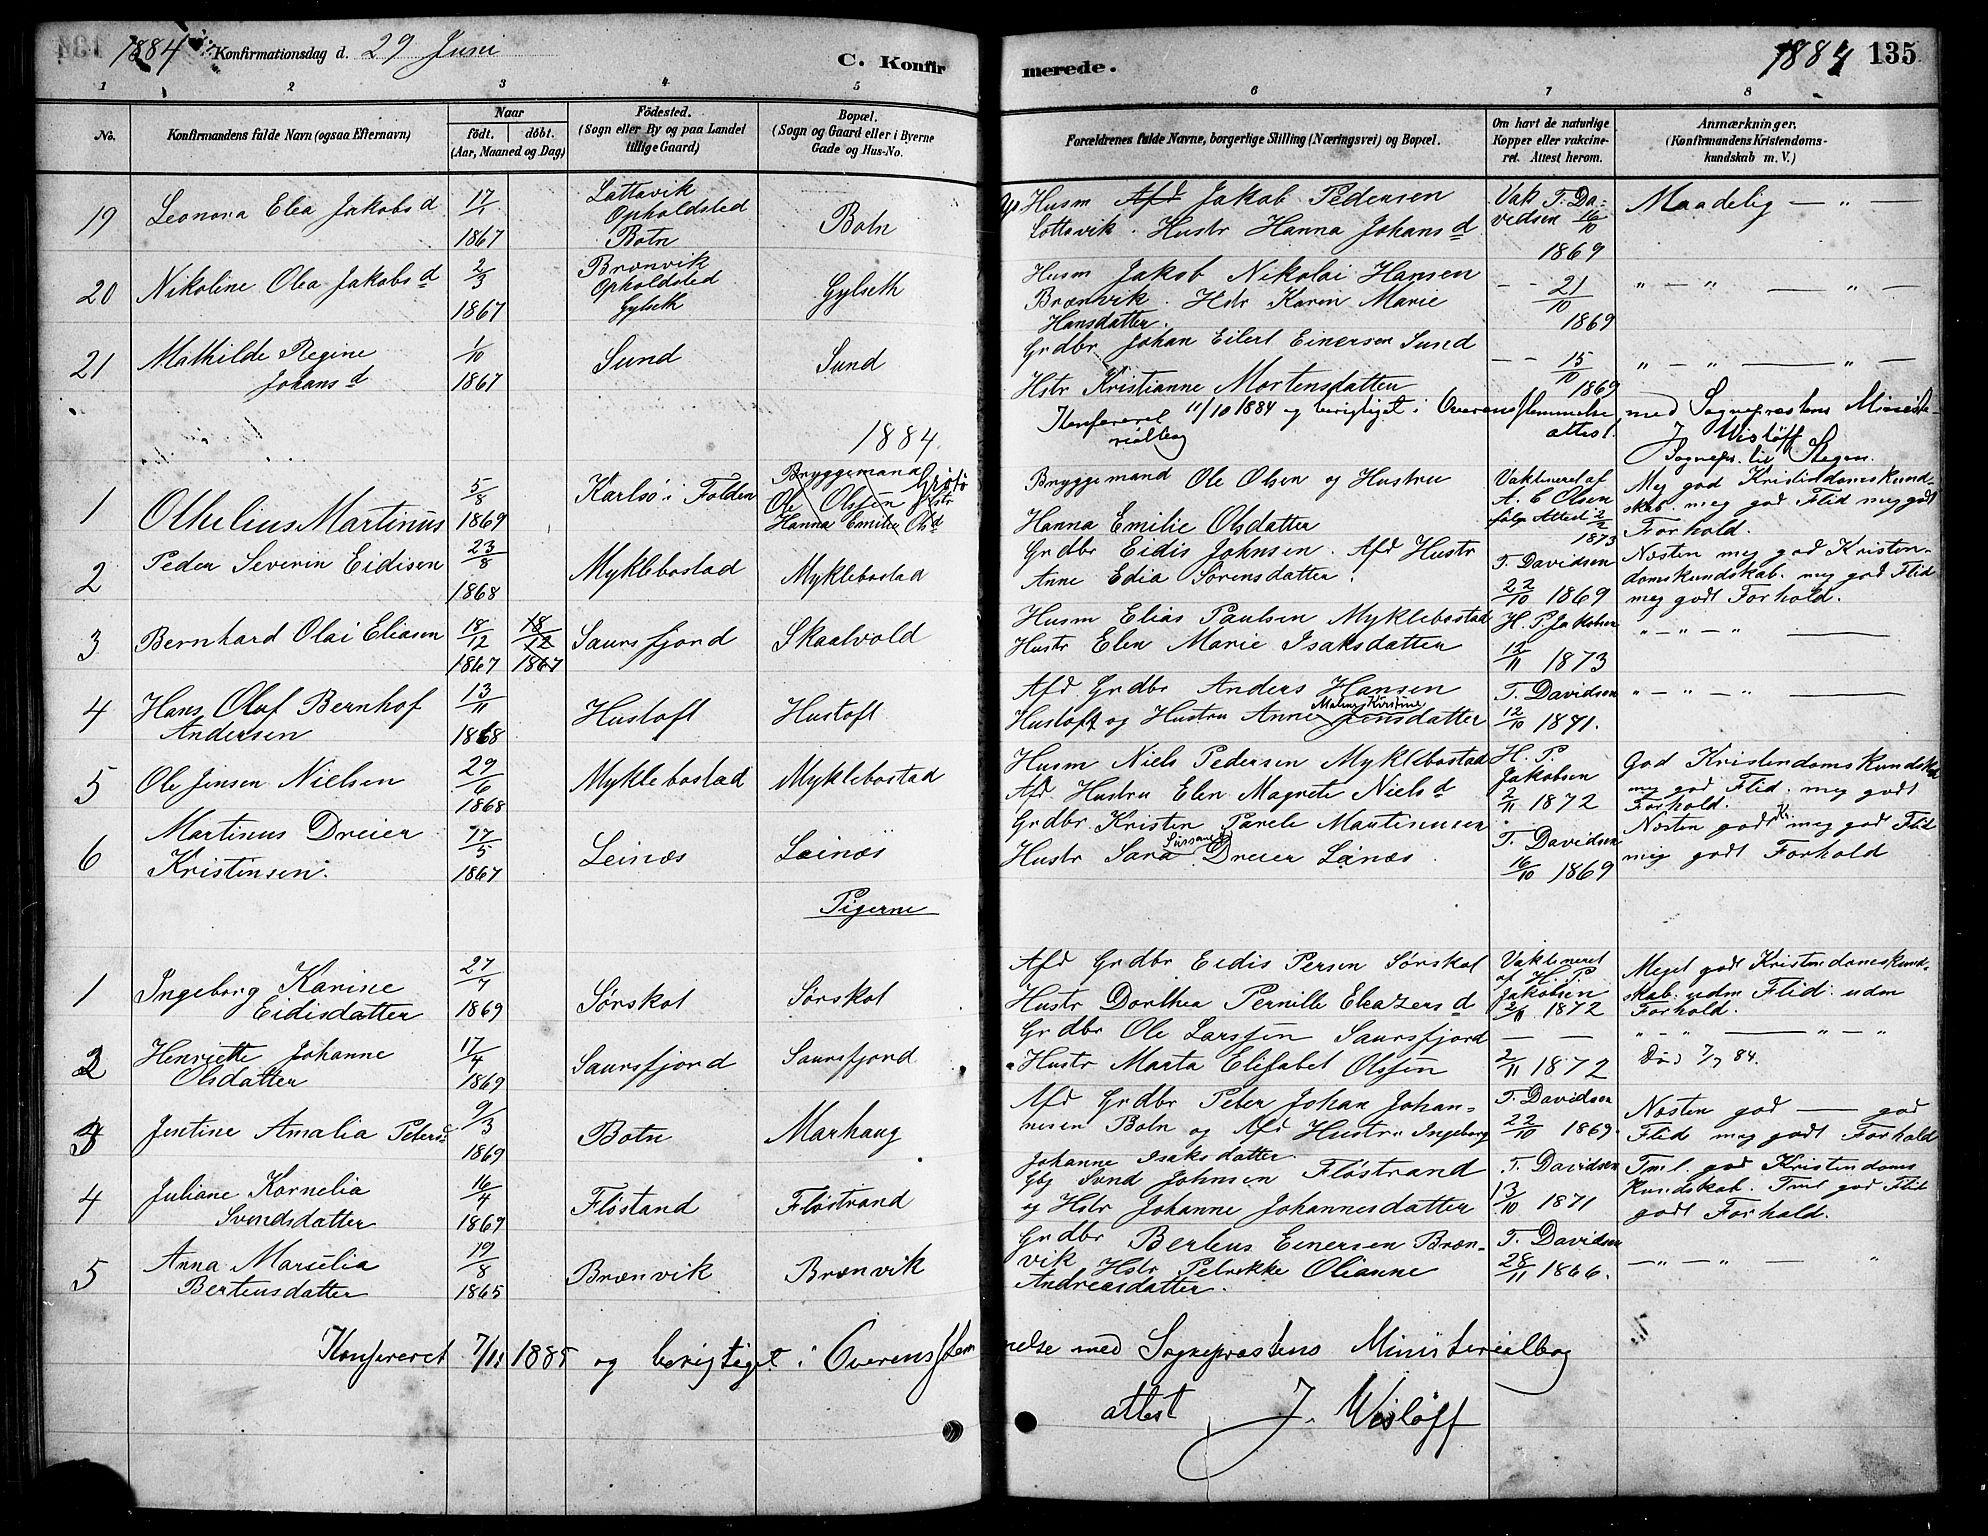 134
1884 Konfirmationsdag d. 29 Juni
C. Konfirmerede.
1884 135
1 2 3 4 5 6 7 8
No.
Konfirmandens fulde Navn (ogsaa Efternavn)
Naar
födt. döbt.
(Aar, Maaned og Dag)
Födested.
(Sogn eller By og paa Landet
tillige Gaard)
Bopæl.
(Sogn og Gaard eller i Byerne
Gade og Hus-No.
Forældrenes fulde Navne, borgerlige Stilling (Næringsvei) og Bopæl.
Om havt de naturlige
Kopper eller vakcine-
ret. Attest herom.
Anmærkninger.
(Konfirmandens Kristendoms-
kundskab m. V.)
19 Leonora Elea Jakobsd 17/1 1867
Lottavik
Opholdsted
Botn
Botn
Husm Afd Jakob Pedersen
Lottavik. Hustr Hanna Johansd
Vak T. Da-
vidsen 16/10
1869
Maadelig — " —
20 Nikoline Olea Jakobsd 2/3 1867
Brænvik
Opholdsted
Gylseth
Gylseth
Husm Jakob Nikolai Hansen
Brænvik. Hstr Karen Marie
Hansdatter.
— — 21/10
1869
" — " — " —
21 Mathilde Regine
Johansd
1/10 1867
Sund
Sund
Grdbr Johan Eilert Einersen Sund
Hstr Kristianne Mortensdatter
— — 15/10
1869
" — " — " —
Konfereret 11/10 1884 og berigtiget i Overensstemmelse med Sognepræstens Ministe-
rialbog
attest.
J Wisløff
Sognepr. til Stegen
1884.
1 Othelius Martinus 5/8 1869
Karlsö i Folden
Bryggemand Grötö
Ole Olssen Hstr
Hanna Emilie Olsd
Bryggemand Ole Olsen og Hustru
Hanna Emilie Olsdatter
Vakcineret af
A. C Olsen
følge Attest 2/2
1873
Meg god Kristendomskund-
skab. meg god Flid meg godt
Forhold.
2 Peder Severin Eidisen 23/8 1868
Myklebostad
Myklebostad
Grdbr Eidis Johnsen. Afd Hustr
Anne Edia Sørensdatter.
T. Davidsen
22/10 1869
Næsten meg god Kristen-
domskundskab. meg god Flid
meg godt Forhold.
3 Bernhard Olai Eliasen 18/12 1867 18/12 1867
Saursfjord
Skaalvold
Husm Elias Paulsen Myklebostad
Hustr Elen Marie Isaksdatter
H. P. Jakobsen
12/11 1873
" — " — "
4 Hans Oluf Bernhof
Andersen
13/11 1868
Hustoft
Hustoft
Afd Grdbr Anders Hansen
Malene Kirstine
Hustoft og Hustru Anne Jensdatter
T. Davidsen
12/10 1871.
" — " — "
5 Ole Jensen Nielsen 29/6 1868
Myklebostad
Myklebostad
Husm Niels Pedersen Myklebostad
Afd Hustru Elen Magrete Nielsd
H. P.
Jakobsen
2/11 1872
God Kristendomskundskab
meg god Flid. meg godt
Forhold.
6 Martinus Dreier
Kristensen.
17/5 1867
Leinæs
Leinæs
Grdbr Kristen Parele Martinusen
Hustr Sara Dreier Leinæs.
T. Davidsen
16/10 1869
Næsten godt meg god Flid
meg godt Forhold
Pigerne
1 Ingeborg Karine
Eidisdatter
27/7 1869
Sørskot
Sørskot
Afd Grdbr Eidis Persen Sørskot
Hustr Dorthea Pernille Eleazersd
Vakcineret
af H. P.
Jakobsen
2/11 1872
Meget godt Kristendomskund-
skab. udm Flid. udm
Forhold.
2 Henriette Johanne
Olsdatter
17/4 1869
Saursfjord
Saursfjord
Grdbr Ole Larssen Saursfjord
Hustr Marta Elisabet Olssen
— —
2/11 1872
" — " — " — "
Död 7/7 84.
3 Jentine Amalia Petersd 9/3 1869
Botn
Marhaug
Afd Grdbr Peter Johan Johan-
nesen Botn og Afd Hustru Ingeborg
Johanne Isaksdatter.
T. Davidsen
22/10 1869
Næsten god — god
Flid meg godt Forhold
4 Juliane Kornelia
Svendsdatter
16/4 1869
Fløstand
Fløstrand
Gbr Svend Johnsen Fløstrand
og Hstr Johanne Johannesdatter
T. Davidsen
13/10 1871
Tml. god Kristendoms
kundskab. Tml god Flid
godt Forhold.
5 Anna Marselia
Berteusdatter
19/8 1865
Brænvik
Brænvik
Grdbr Berteus Einersen Bræn-
vik Hstr Petrikke Olianne
Andreasdatter.
T. Davidsen
28/11 1866.
— " — " — "
Konfereret 7/11 1885 og berigtiget i Overensstemmelse med Sognepræstens Ministerialbog
attest J. Wisløff